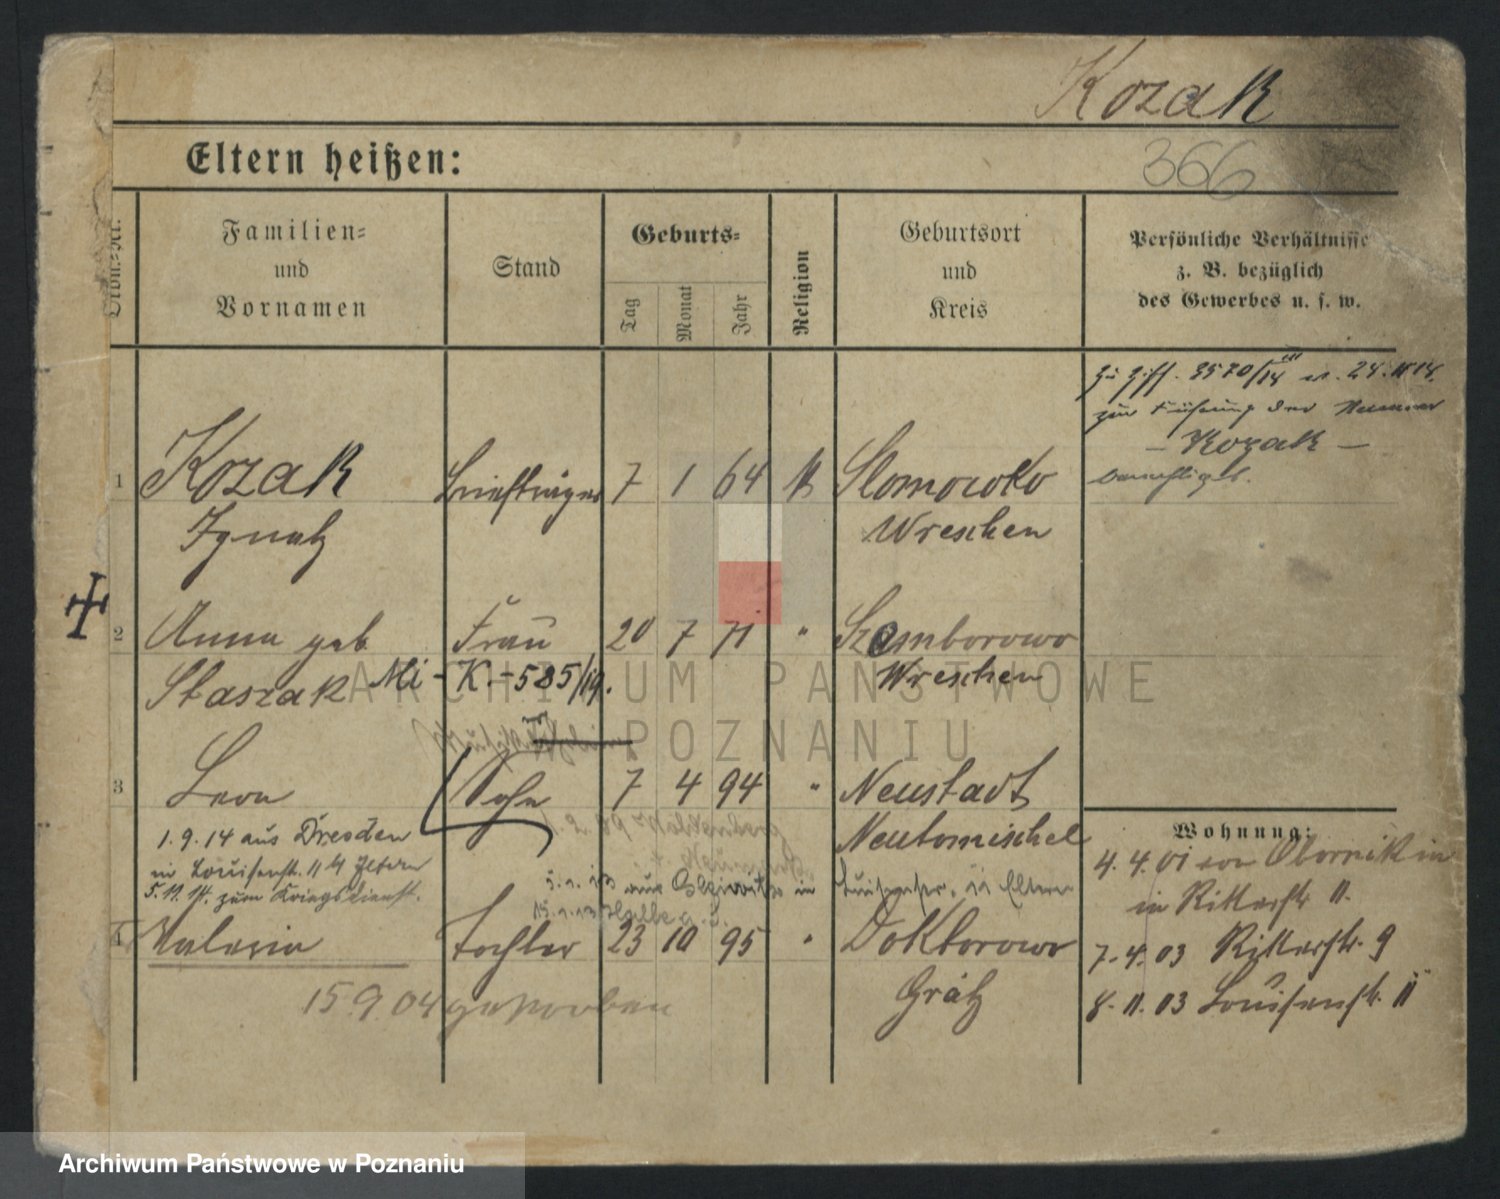 Kozak
Eltern heißen:
366
Ordn.-Nr.
Familien-
und
Vornamen
Stand
Geburts-
Tag
Monat
Jahr
Religion
Geburtsort
und
Kreis
Persönliche Verhältnisse
z. B. bezüglich
des Gewerbes u. s. w.
zur Führung des Namens
— Kozak —
berechtigt.
1 Kozak Briefträger 7 1 64 K Slomowko
Ignatz Wreschen
2 Anna geb. Frau 20 7 71 " Szemborowo
Staszak Mi - K. - 585/19. Wreschen
3 Leon Sohn 7 4 94 " Neustadt
Neutomischel
1.9.14 aus Dresden
in Louisenst. 11 b/ Eltern
5.11.14. zum Kriegsdienst.
5.1.13 aus Gleiwitz in Luisenstr. 11 Eltern
15.1.13
4 Valeria Tochter 23 10 95 " Doktorowo
15.9.04 gestorben Grätz
Wohnung:
4.4.01 von Obornik in
in Ritterstr 11.
7.4.03 Ritterstr. 9
8.11.03 Louisenstr. 11
ARCHIWUM PAŃSTWOWE
W POZNANIU
Archiwum Państwowe w Poznaniu